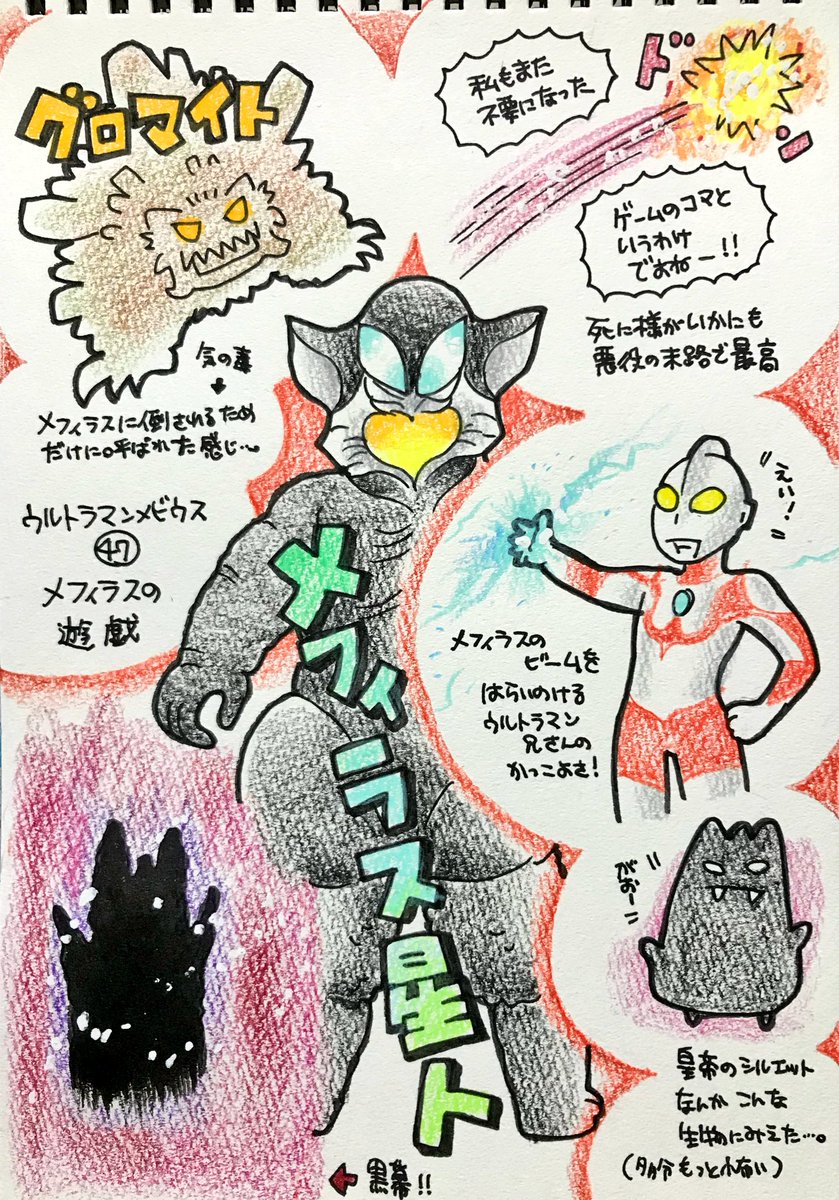 グロマイト
私もまた
不要になった
ドーン
ゲームのコマと
いうわけ
ですねー!!
死に様がいかにも
悪役の末路で最高
気の毒
メフィラスに倒されるため
だけに呼ばれた感じ…
ウルトラマンメビウス
㊼
メフィラスの
遊戯
メフィラス星人
えい!
メフィラスの
ビームを
はらいのける
ウルトラマン
兄さんの
かっこよさ!
がおー
皇帝のシルエット
なんかこんな
生物にみえた…。
(多分もっと怖い)
←黒幕!!